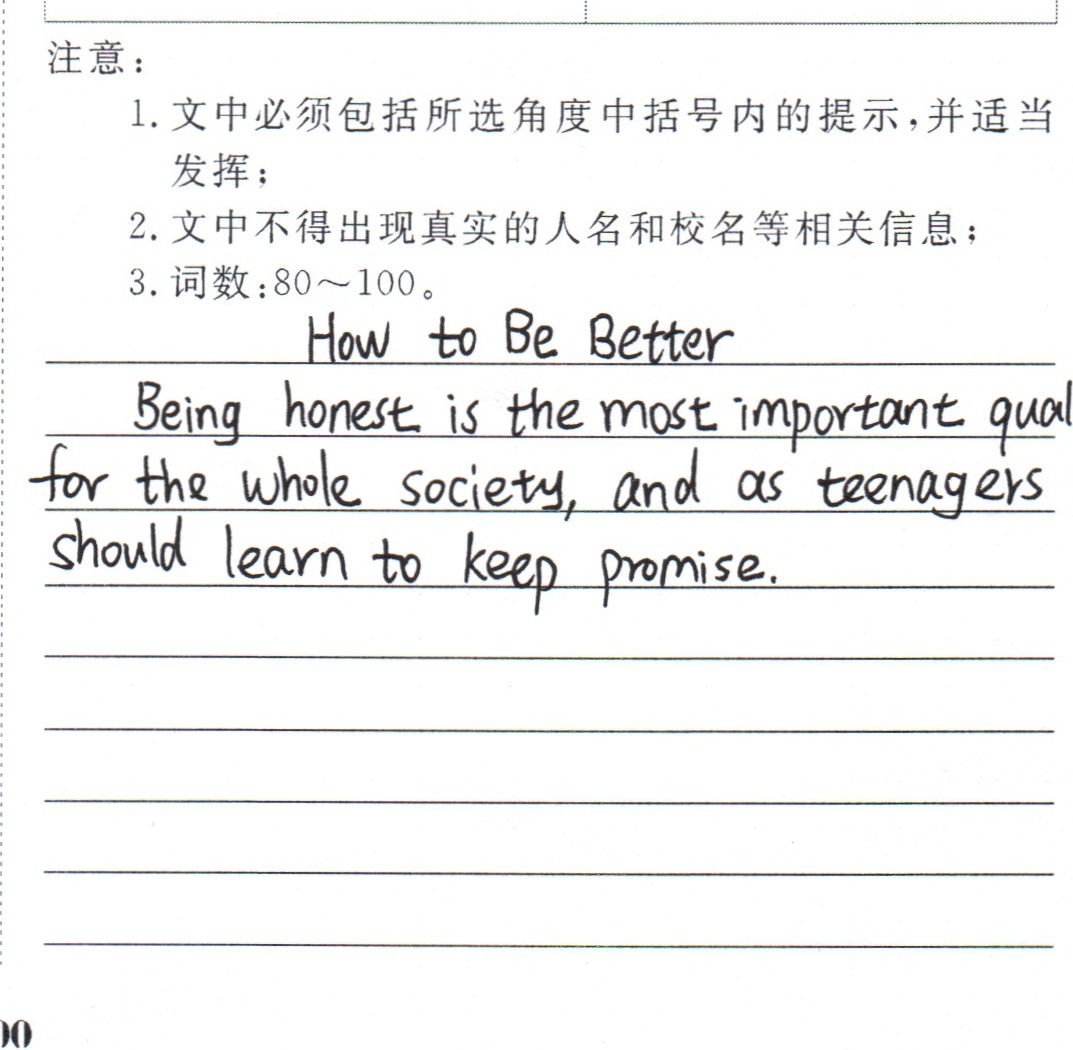 注意：
1. 文中必须包括所选角度中括号内的提示，并适当
发挥；
2. 文中不得出现真实的人名和校名等相关信息；
3. 词数：80～100。
How to Be Better
Being honest is the most important qual
for the whole society, and as teenagers
should learn to keep promise.